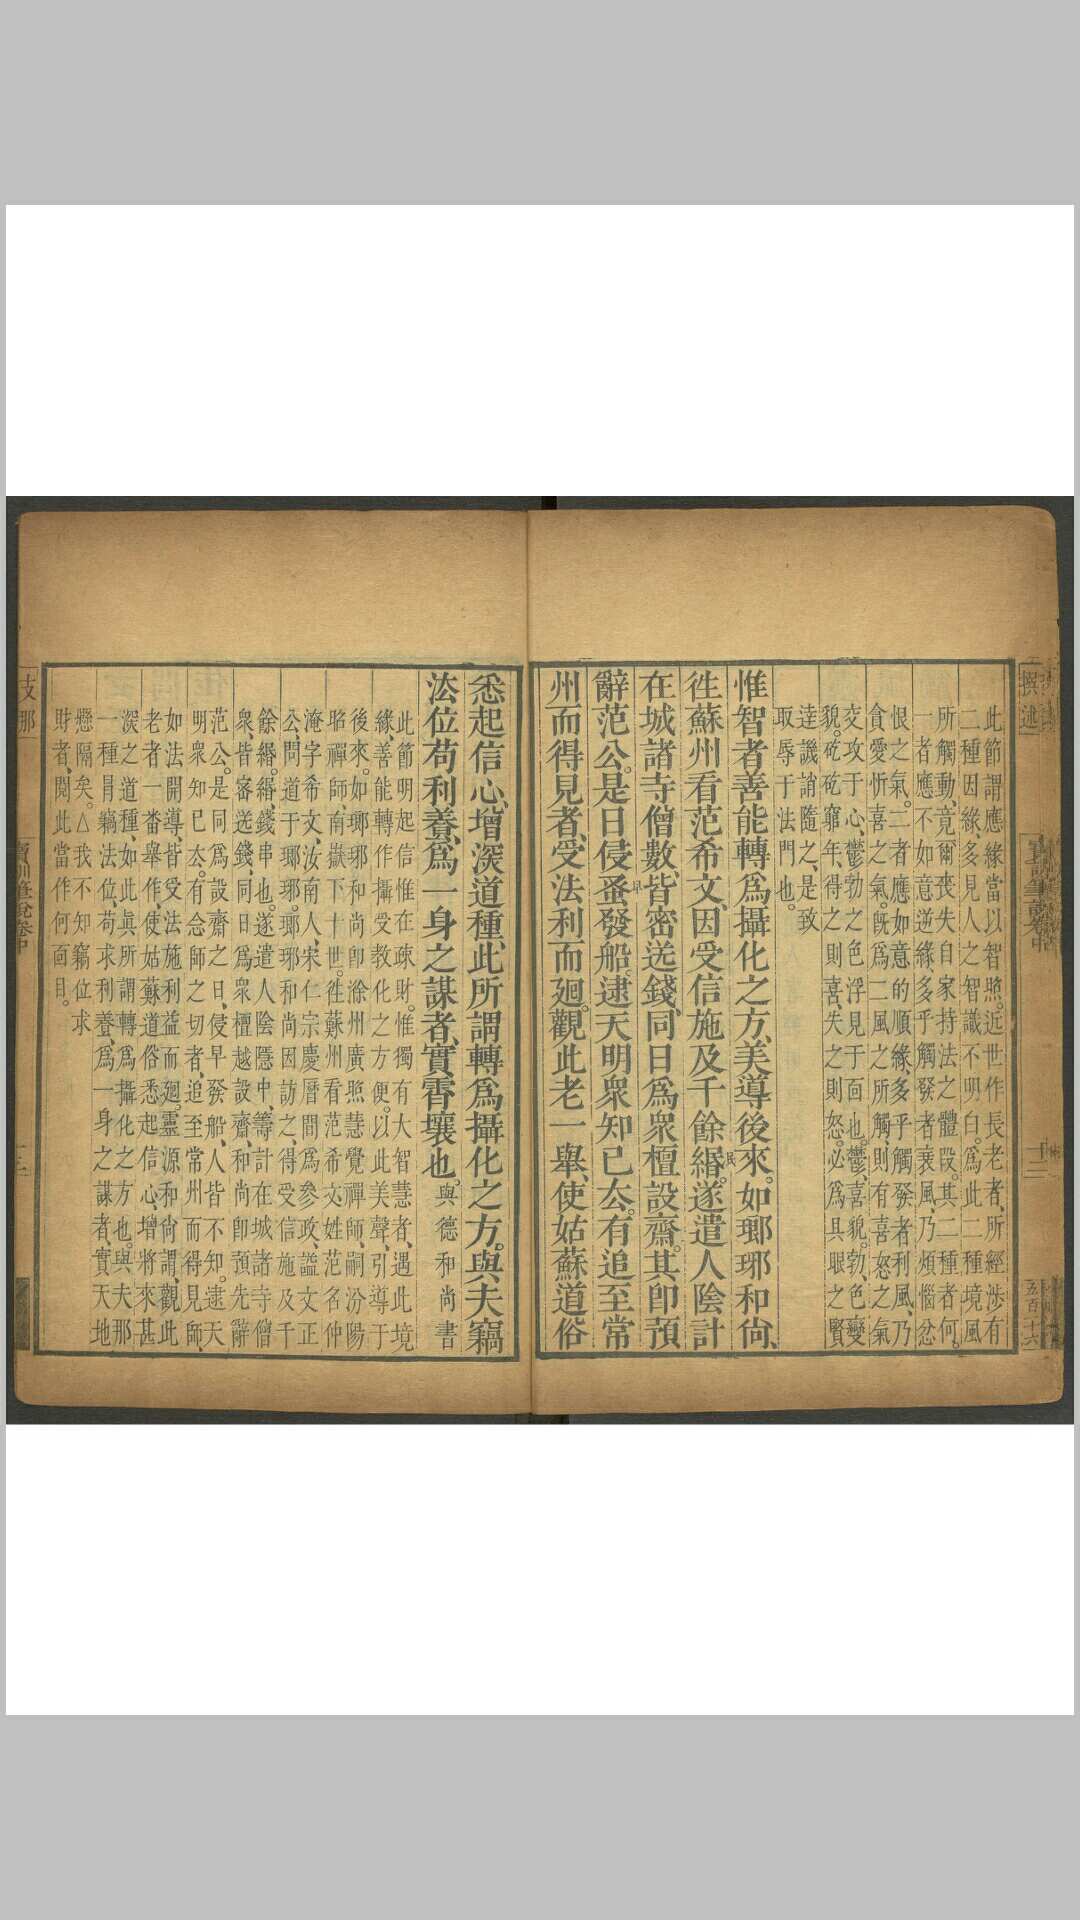 此節謂應緣當以智照。近世作長老者、所經涉有
二種因緣、多見人之智識不明白。爲此二種境風
所觸動、竟爾喪失自家持法之體段。其二種者何。
一者應不如意逆緣、多乎觸發者衰風、乃煩惱忿
恨之氣。二者應如意的順緣、多乎觸發者利風、乃
貪愛忻喜之氣。既爲二風之所觸、則有喜怒之氣
交攻于心、鬱勃之色浮見于面也。鬱、喜貌。勃、色變
貌。矻矻窮年、得之則喜、失之則怒。必爲具眼之賢
逹譏誚隨之、是致
取辱于法門也。
惟智者善能轉爲攝化之方、美導後來。如瑯琊和尙、
徃蘇州看范希文、因受信施及千餘緡。遂遣人陰計
在城諸寺僧數、皆密送錢、同日爲衆檀設齋。其卽預
辭范公。是日侵蚤發船。逮天明衆知已去。有追至常
州而得見者、受法利而廻。觀此老一舉、使姑蘇道俗
悉起信心、增深道種、此所謂轉爲攝化之方。與夫竊
法位苟利養、爲一身之謀者、實霄壤也。與德和尙書
此節明起信惟在疎財。惟獨有大智慧者、遇此境
緣、善能轉作攝受教化之方便。以此美聲、引導于
後來。如瑯琊和尙卽滁州廣照慧覺禪師、嗣汾陽
昭禪師、南嶽下十世。徃蘇州看范希文姓范名仲
淹字希文、汝南人、宋仁宗慶曆間爲參政、謚文正
公、問道于瑯琊。瑯琊和尙因訪之、得受信施及千
餘緡。緡、錢串也。遂遣人陰隱中、籌計在城諸寺僧
衆、皆密送錢、同日爲衆檀越設齋、和尙卽預先辭
范公。是同爲設齋之日、侵早發船、人皆不知。逮天
明衆知已去。有念師之切者、追至常州而得見師、
如法開導、皆受法施利益而廻。靈源和尙謂、觀此
老者一番舉作、使姑蘇道俗悉起信心、增將來甚
深之道種、如此眞所謂轉爲攝化之方也。與夫那
一種冐竊法位、苟求利養、爲一身之謀者、實天地
懸隔矣。△我不知竊位求
財者、閱此當作何面目。
支那
寶訓筆說卷中
撰述
五百十六